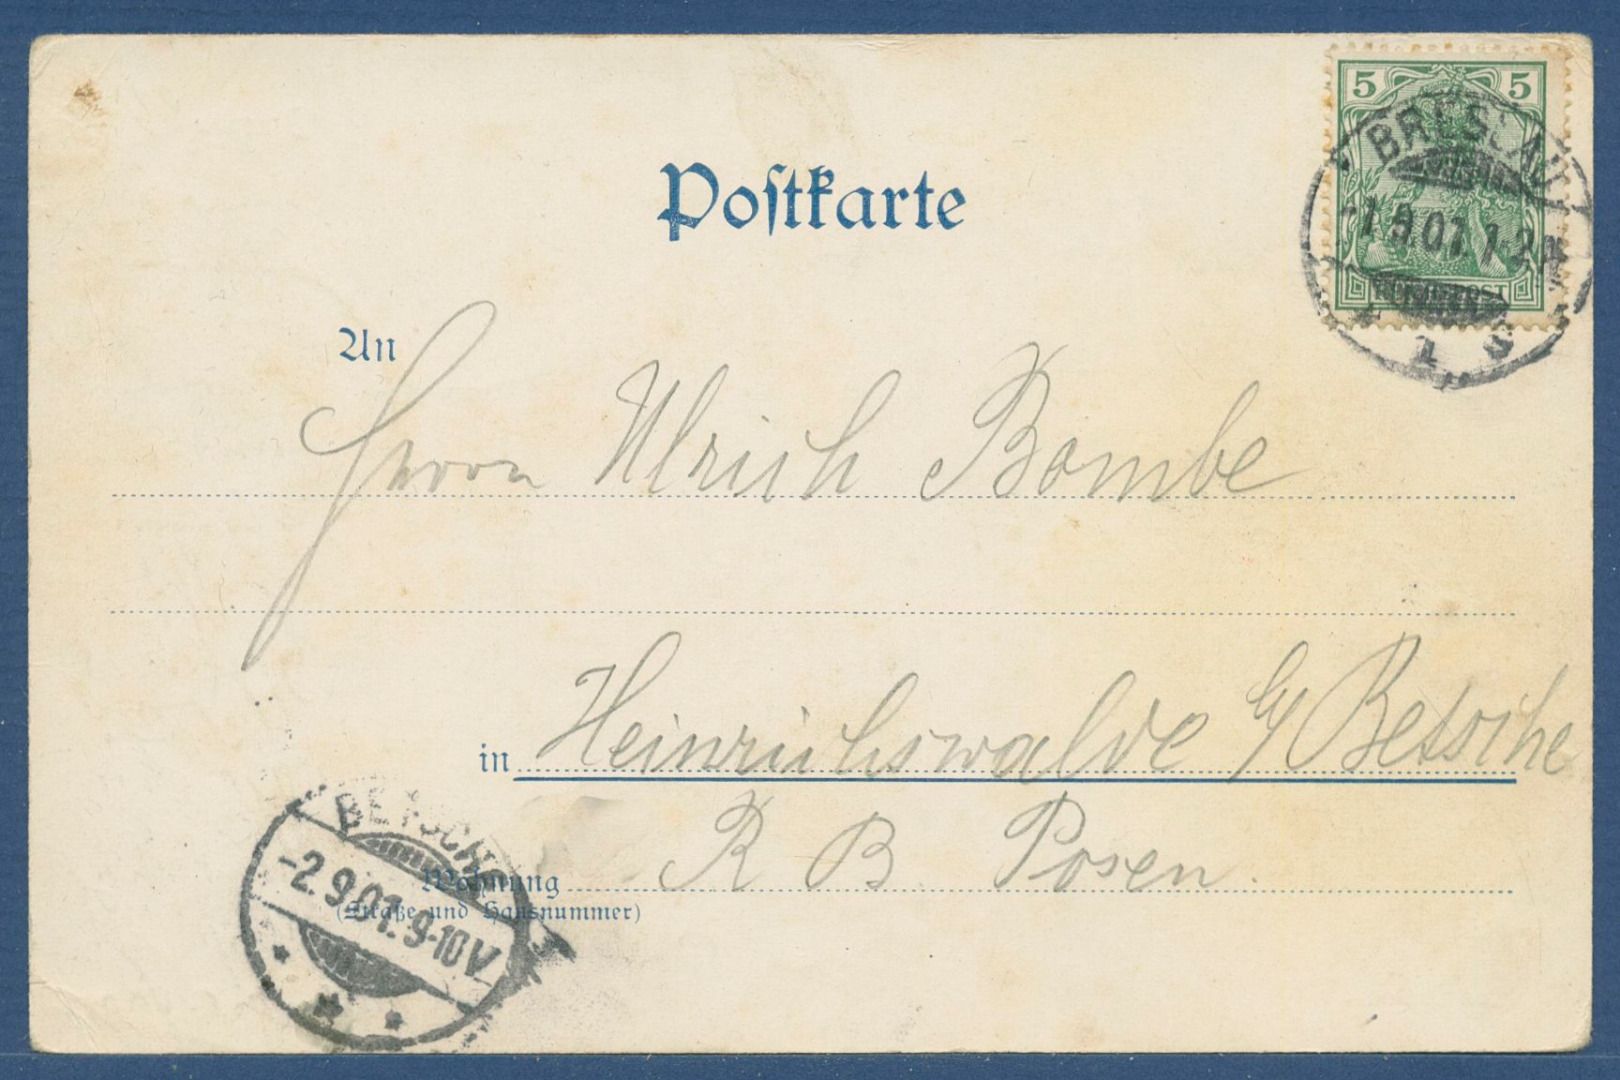 5 5
BRESLAU
-1.9.01. 1-2 N
1 s
Postkarte
An
Herrn Ulrich Bombe
in Heinrichswalde b/ Betsche
R B Posen.
Wohnung
(Straße und Hausnummer)
BETSCHE
-2.9.01. 9-10 V